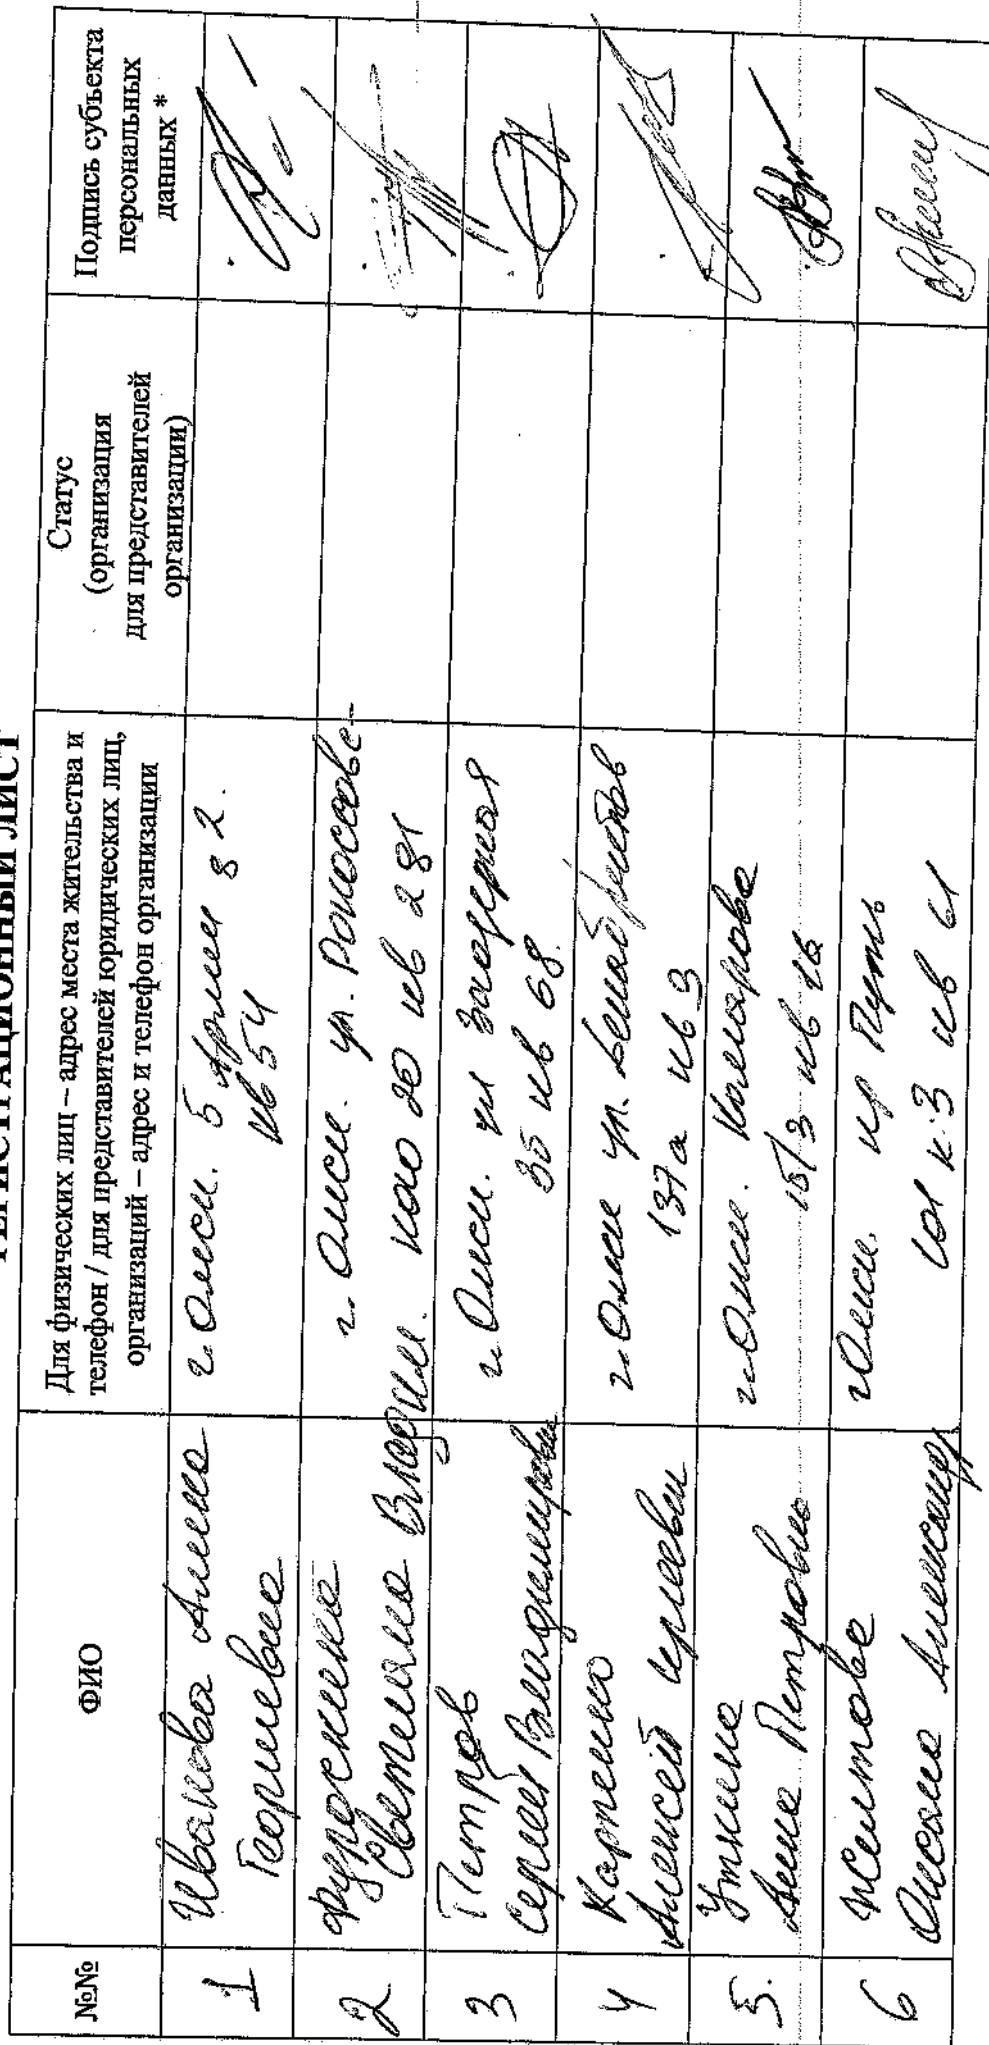 РЕГИСТРАЦИОННЫЙ ЛИСТ
№№
ФИО
Для физических лиц – адрес места жительства и
телефон / для представителей юридических лиц,
организаций – адрес и телефон организации
Статус
(организация
для представителей
организации)
Подпись субъекта
персональных
данных *
1
Иванова Алина
Георгиевна
г. Омск. 5 Армии 82.
кв 54
2
Светлана Владим.
г. Омск. ул. Рокоссовс-
кого 20 кв 281
3
Петров
Сергей Владимирович
г. Омск. ул Заозерная
35 кв 68.
4
Карпенко
Алексей
г. Омск ул. Декабристов
137а кв 9
5.
Уткина
Анна Петровна
г. Омск. Комарова
15/3 кв 16
6
Желтова
Оксана Александр
г Омск. пр Путь
к 3 кв 61